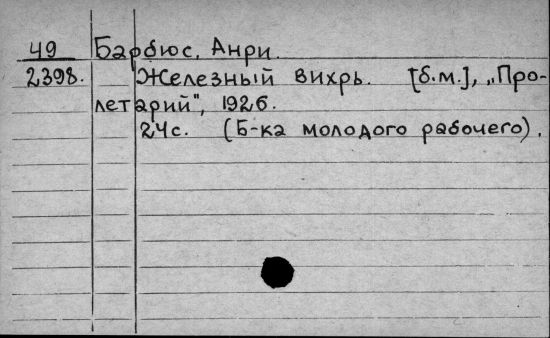 49 Барбюс, Анри.
2398. Железный вихрь. [б.м.], „Про-
летарий", 1926.
24с. (Б-ка молодого рабочего).